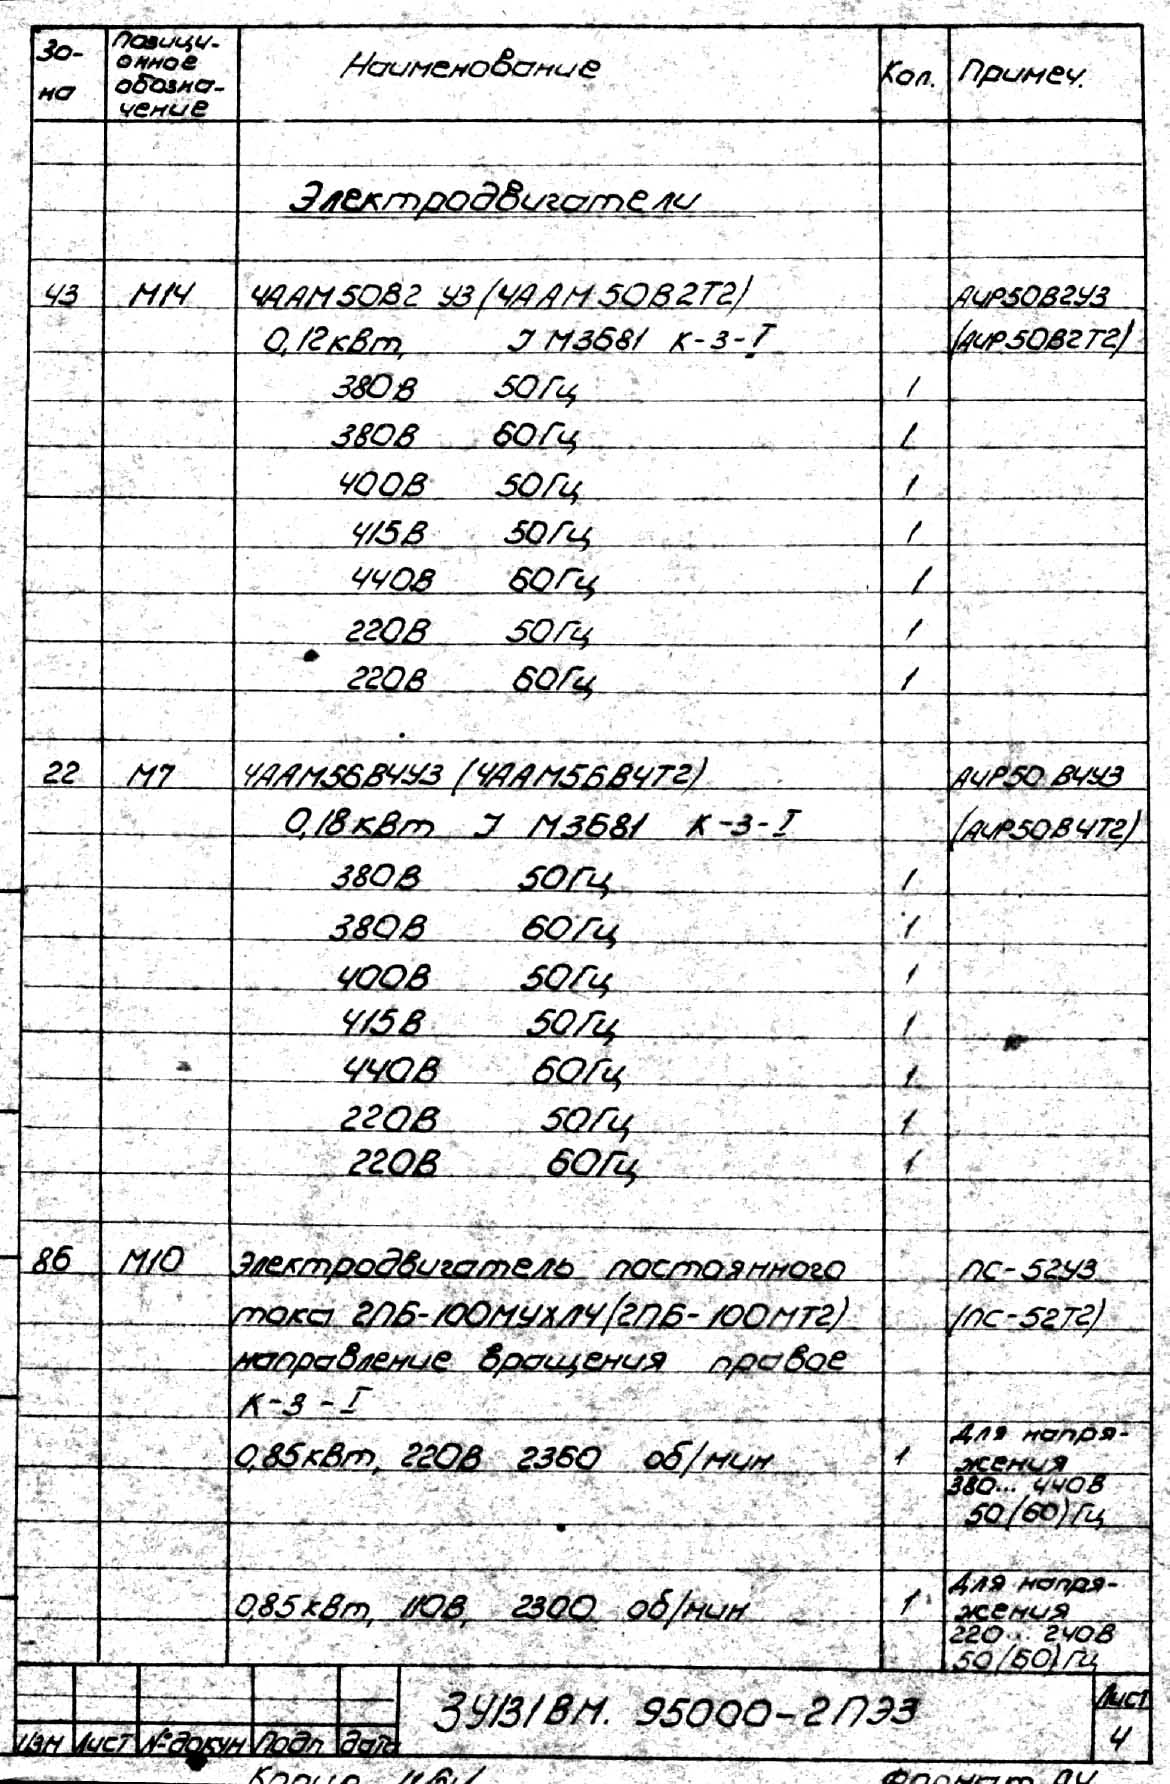 Зо-
на
Позици-
онное
обозна-
чение
Наименование
Кол.
Примеч.
Электродвигатели
43 М14 4ААМ50В2 У3 (4ААМ50В2Т2) АИР50В2У3
0,12кВт, IМ3681 К-3-I (АИР50В2Т2)
380В 50Гц 1
380В 60Гц 1
400В 50Гц 1
415В 50Гц 1
440В 60Гц 1
220В 50Гц 1
220В 60Гц 1
22 М7 4ААМ56В4У3 (4ААМ56В4Т2) АИР50В4У3
0,18кВт IМ3681 К-3-I (АИР50В4Т2)
380В 50Гц 1
380В 60Гц 1
400В 50Гц 1
415В 50Гц 1
440В 60Гц 1
220В 50Гц 1
220В 60Гц 1
86 М10 Электродвигатель постоянного ПС-52У3
тока 2ПБ-100МУХЛ4 (2ПБ-100МТ2) (ПС-52Т2)
направление вращения правое
К-3-I
0,85кВт, 220В 2360 об/мин 1
Для напря-
жения
380... 440В
50(60)Гц
0,85кВт, 110В, 2300 об/мин 1
Для напря-
жения
220... 240В
50(60)Гц
3У131ВМ. 95000-2ПЭ3
Лист
4
Изм Лист № докум Подп. Дата
Формат А4